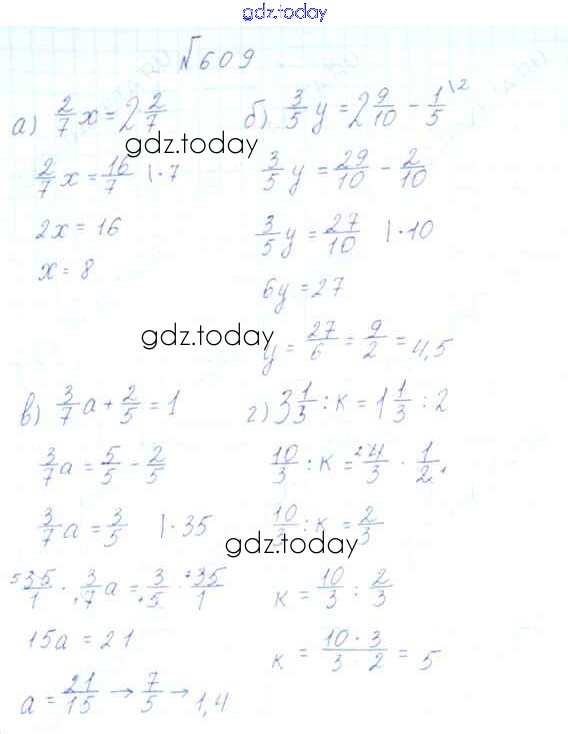 gdz.today
№609
а) 2/7 x = 2 2/7
2/7 x = 16/7 |·7
2x = 16
x = 8
б) 3/5 y = 2 9/10 - 1/5 \2
3/5 y = 29/10 - 2/10
3/5 y = 27/10 |·10
6y = 27
y = 27/6 = 9/2 = 4,5
gdz.today
gdz.today
в) 3/7 a + 2/5 = 1
3/7 a = 5/5 - 2/5
3/7 a = 3/5 |·35
35/1 · 3/7 a = 3/5 · 35/1
15a = 21
a = 21/15 → 7/5 → 1,4
г) 3 1/3 : к = 1 1/3 : 2
10/3 : к = 4/3 · 1/2
10/3 : к = 2/3
gdz.today
к = 10/3 : 2/3
к = 10·3/3·2 = 5